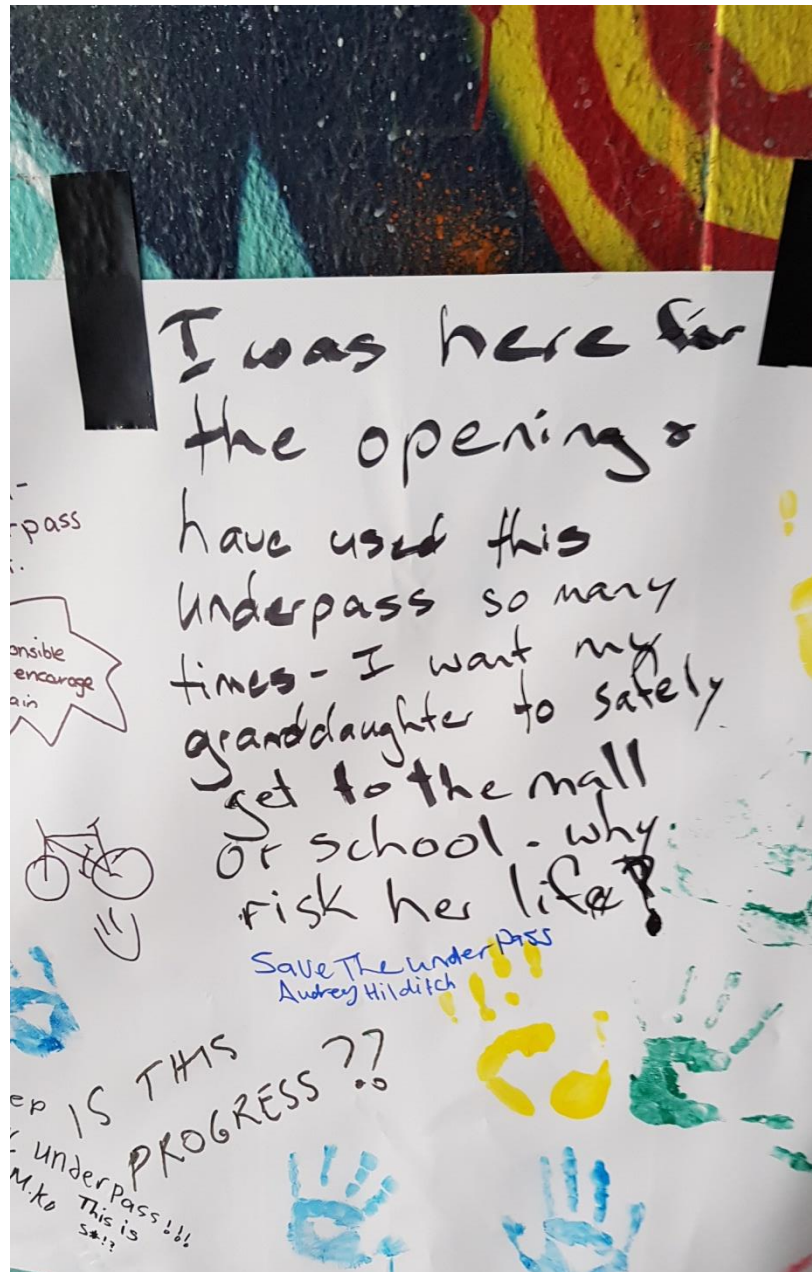 I was here for
the opening &
have used this
underpass so many
times - I want my
granddaughter to safely
get to the mall
or school. why
risk her life?
Save The underpass
Audrey Hilditch
pass
onsible
encarage
ain
IS THIS
PROGRESS??
ep
underpass!!!
M.Ko This is
S*!?